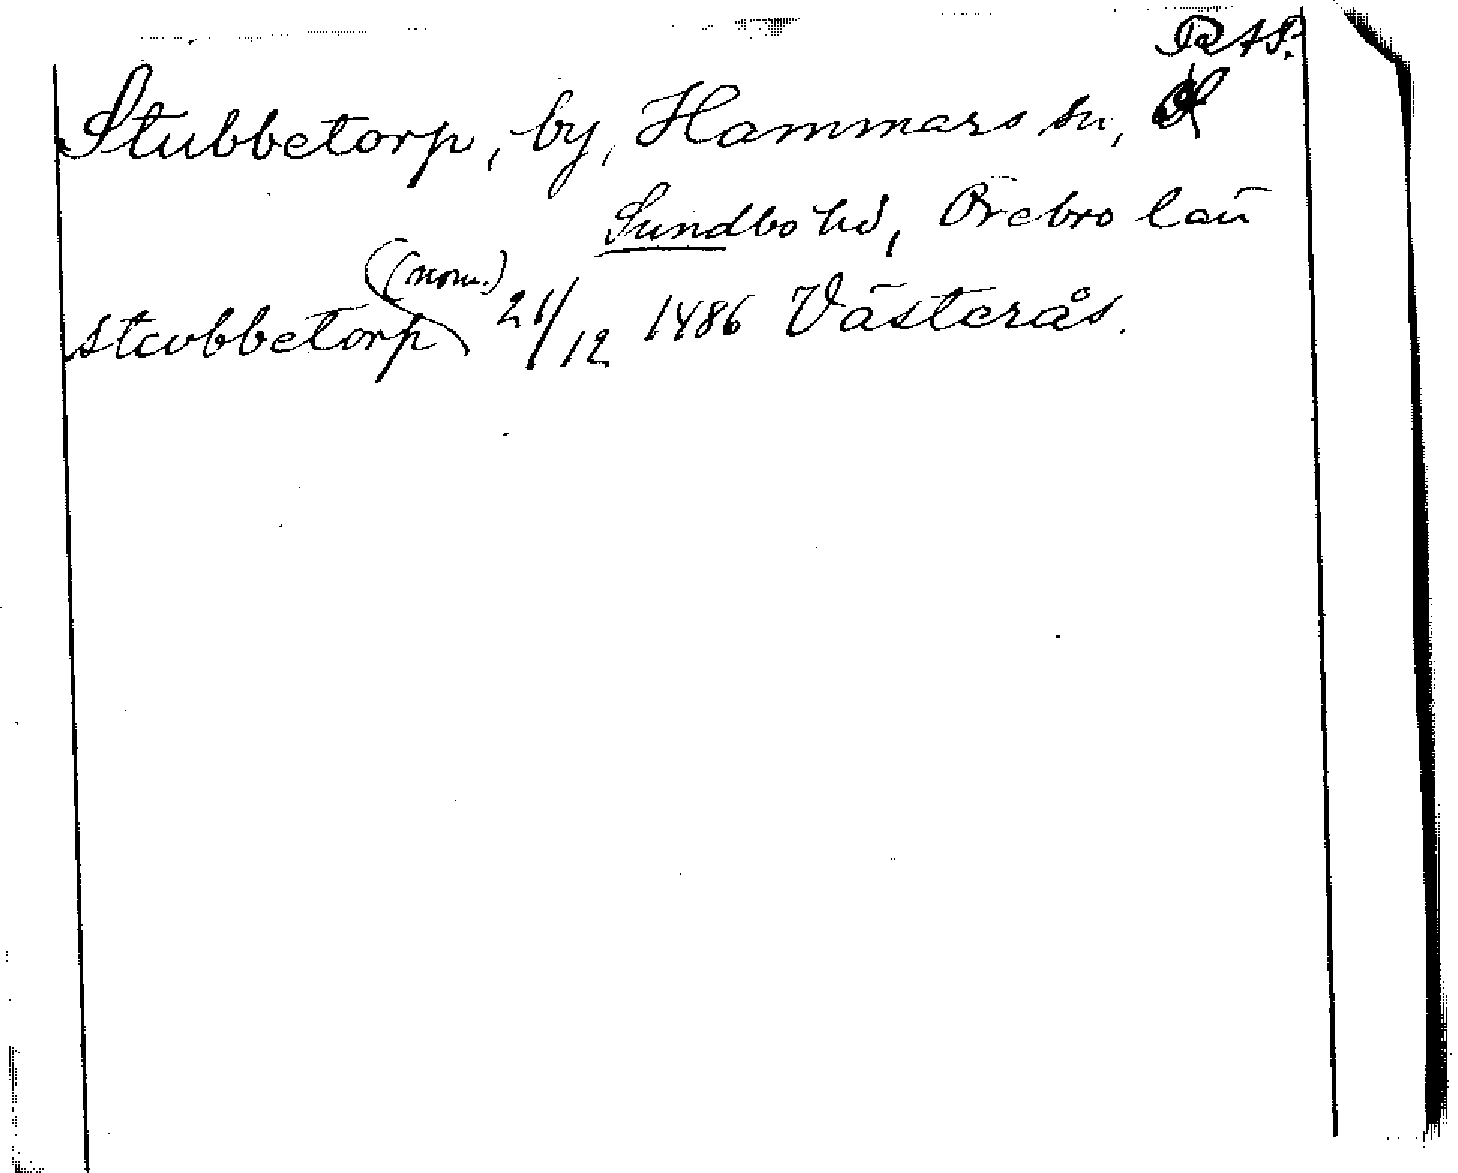 RAP.
Stubbetorp, by, Hammars sn,
Sundbo hd, Örebro län
(nom.)
stwbbetorp 21/12 1486 Västerås.